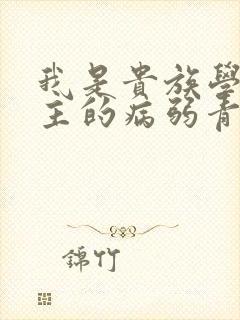 我是貴族學
主的病弱青
錦竹